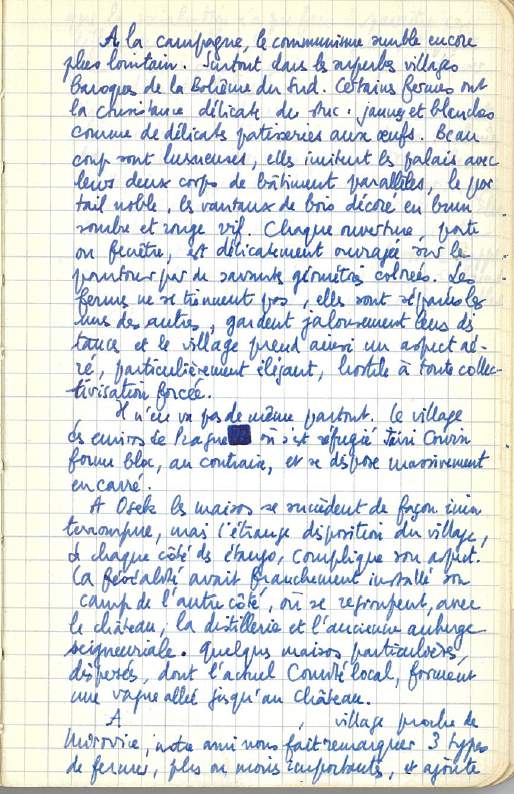 A la campagne, le communisme semble encore
plus lointain. Surtout dans les superbes villages
baroques de la Bohême du Sud. Certaines fermes ont
la consistance délicate du stuc. jaunes et blanches
comme de délicats patisseries aux œufs. Beau
coup sont luxueuses, elles imitent les palais avec
leurs deux corps de bâtiment parallèles, le por
tail noble, les vantaux de bois décoré en brun
sombre et rouge vif. Chaque ouverture, porte
ou fenêtre, est délicatement ouvragée sur le
pourtour par de savants géométries colorées. Les
fermes ne se tiennent pas, elles sont séparées les
unes des autres, gardent jalousement leurs dis
tances et le village prend ainsi un aspect aé-
ré, particulièrement élégant, hostile à toute collec-
tivisation forcée.
Il n'en va pas de même partout. Le village
des environs de Prague où s'est réfugié
forme bloc, au contraire, et se dispose massivement
en carré.
A Osek les maisons se succèdent de façon inin
terrompue, mais l'étrange disposition du village,
de chaque côté des étangs, complique son aspect.
La féodalité avait franchement installé son
camp de l'autre côté, où se regroupent, avec
le château, la distillerie et l'ancienne auberge
seigneuriale. Quelques maisons particulières,
dispersés, dont l'actuel Comité local, forment
une vague allée jusqu'au château.
A , village proche de
, notre ami nous fait remarquer 3 types
de fermes, plus ou moins importantes, et ajoute